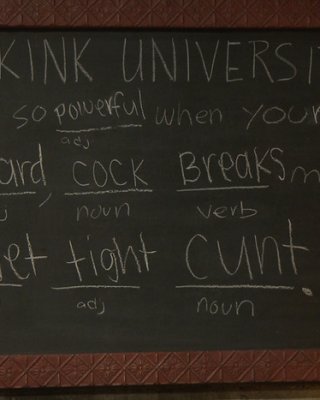 KINK UNIVERSI
so powerful when your
adj
ard, cock Breaks m
j noun verb
et tight cunt.
adj noun